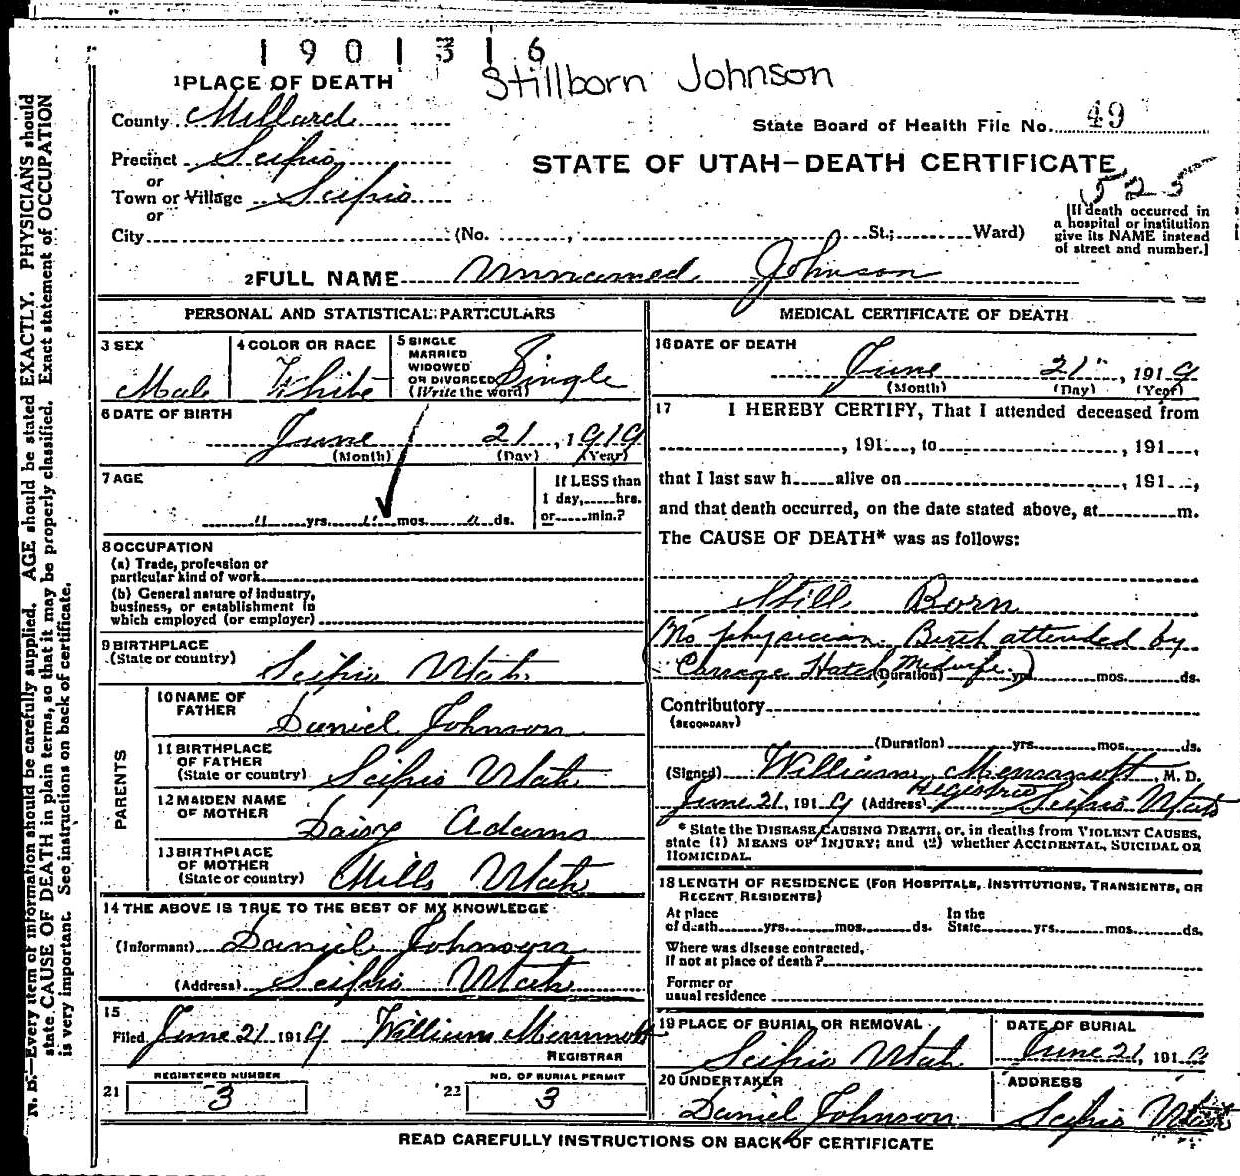 1901316
Stillborn Johnson
1 PLACE OF DEATH
County Millard
State Board of Health File No. 49
Precinct Scipio
STATE OF UTAH—DEATH CERTIFICATE
525
or
Town or Village Scipio
or
City (No. , St.; Ward)
[If death occurred in
a hospital or institution
give its NAME instead
of street and number.]
2 FULL NAME Unnamed Johnson
PERSONAL AND STATISTICAL PARTICULARS
3 SEX Male
4 COLOR OR RACE White
5 SINGLE
MARRIED
WIDOWED
OR DIVORCED
(Write the word) Single
6 DATE OF BIRTH
June 21, 1919
(Month) (Day) (Year)
7 AGE
" yrs. " mos. " ds.
If LESS than
1 day, hrs.
or min.?
8 OCCUPATION
(a) Trade, profession or
particular kind of work
(b) General nature of industry,
business, or establishment in
which employed (or employer)
9 BIRTHPLACE
(State or country) Scipio Utah
PARENTS
10 NAME OF
FATHER Daniel Johnson
11 BIRTHPLACE
OF FATHER
(State or country) Scipio Utah
12 MAIDEN NAME
OF MOTHER Daisy Adams
13 BIRTHPLACE
OF MOTHER
(State or country) Mills Utah
14 THE ABOVE IS TRUE TO THE BEST OF MY KNOWLEDGE
(Informant) Daniel Johnson
(Address) Scipio Utah
15
Filed June 21 1919 William
REGISTRAR
21 REGISTERED NUMBER
3
22 NO. OF BURIAL PERMIT
3
MEDICAL CERTIFICATE OF DEATH
16 DATE OF DEATH
June 21", 1919
(Month) (Day) (Year)
17 I HEREBY CERTIFY, That I attended deceased from
, 191 , to , 191 ,
that I last saw h alive on , 191 ,
and that death occurred, on the date stated above, at m.
The CAUSE OF DEATH* was as follows:
Still Born
(No physician. Birth attended by
Hatch, Midwife.)
(Duration) yrs. mos. ds.
Contributory
(SECONDARY)
(Duration) yrs. mos. ds.
(Signed) William , M. D.
Registrar
June 21, 1919 (Address) Scipio Utah
* State the DISEASE CAUSING DEATH, or, in deaths from VIOLENT CAUSES,
state (1) MEANS OF INJURY; and (2) whether ACCIDENTAL, SUICIDAL OR
HOMICIDAL.
18 LENGTH OF RESIDENCE (FOR HOSPITALS, INSTITUTIONS, TRANSIENTS, OR
RECENT RESIDENTS)
At place
of death yrs. mos. ds.
In the
State yrs. mos. ds.
Where was disease contracted,
If not at place of death?
Former or
usual residence
19 PLACE OF BURIAL OR REMOVAL
Scipio Utah
DATE OF BURIAL
June 21, 1919
20 UNDERTAKER
Daniel Johnson
ADDRESS
Scipio Utah
READ CAREFULLY INSTRUCTIONS ON BACK OF CERTIFICATE
N. B.—Every item of information should be carefully supplied. AGE should be stated EXACTLY. PHYSICIANS should
state CAUSE OF DEATH in plain terms, so that it may be properly classified. Exact statement of OCCUPATION
is very important. See instructions on back of certificate.